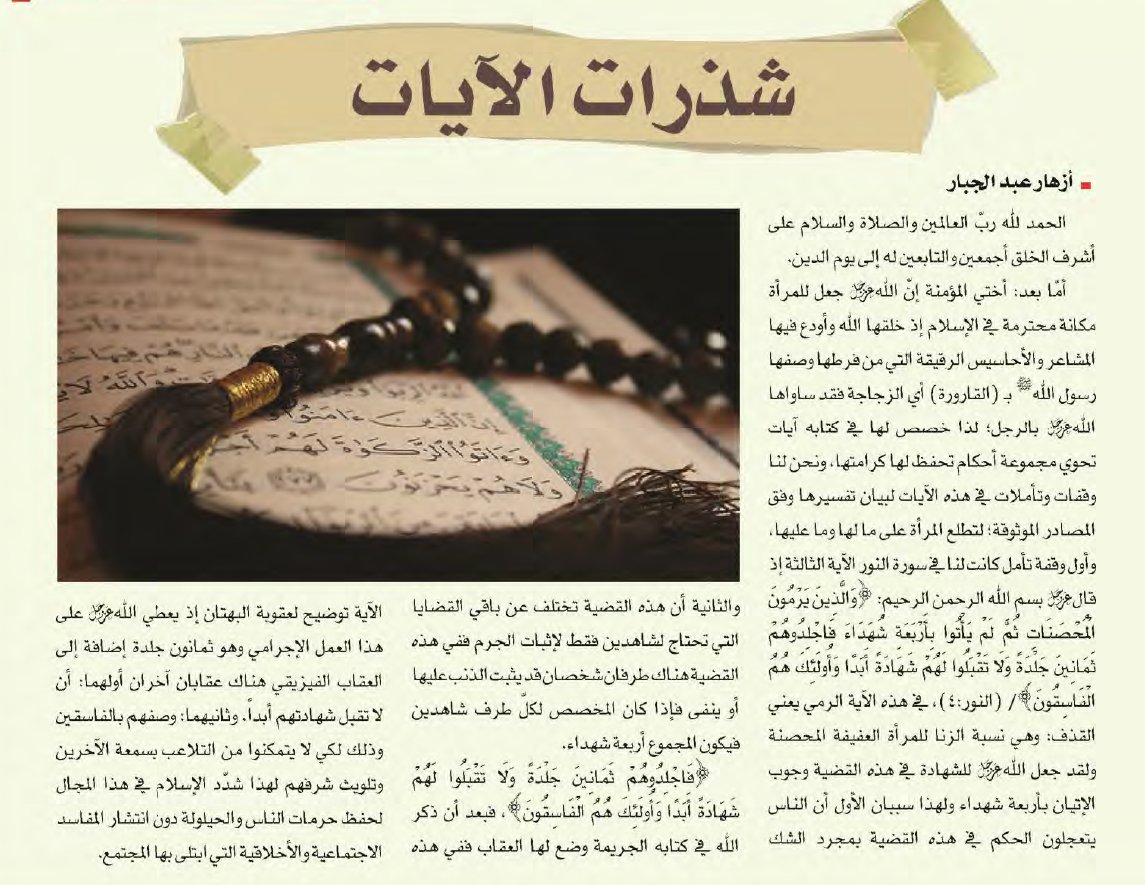 شذرات الآيات
أزهار عبد الجبار
الحمد لله ربّ العالمين والصلاة والسلام على
أشرف الخلق أجمعين والتابعين له إلى يوم الدين.
أمّا بعد: أختي المؤمنة إنّ الله عزوجل جعل للمرأة
مكانة محترمة في الإسلام إذ خلقها الله وأودع فيها
المشاعر والأحاسيس الرقيقة التي من فرطها وصفها
رسول الله ﷺ بـ (القارورة) أي الزجاجة فقد ساواها
الله عزوجل بالرجل؛ لذا خصص لها في كتابه آيات
تحوي مجموعة أحكام تحفظ لها كرامتها، ونحن لنا
وقفات وتأملات في هذه الآيات لبيان تفسيرها وفق
المصادر الموثوقة؛ لتطلع المرأة على ما لها وما عليها،
وأول وقفة تأمل كانت لنا في سورة النور الآية الثالثة إذ
قال عزوجل بسم الله الرحمن الرحيم: ﴿وَالَّذِينَ يَرْمُونَ
الْمُحْصَنَاتِ ثُمَّ لَمْ يَأْتُوا بِأَرْبَعَةِ شُهَدَاءَ فَاجْلِدُوهُمْ
ثَمَانِينَ جَلْدَةً وَلَا تَقْبَلُوا لَهُمْ شَهَادَةً أَبَدًا وَأُولَئِكَ هُمُ
الْفَاسِقُونَ﴾/ (النور:٤)، في هذه الآية الرمي يعني
القذف: وهي نسبة الزنا للمرأة العفيفة المحصنة
ولقد جعل الله عزوجل للشهادة في هذه القضية وجوب
الإتيان بأربعة شهداء ولهذا سببان الأول أن الناس
يتعجلون الحكم في هذه القضية بمجرد الشك
والثانية أن هذه القضية تختلف عن باقي القضايا
التي تحتاج لشاهدين فقط لإثبات الجرم ففي هذه
القضية هناك طرفان شخصان قد يثبت الذنب عليها
أو ينفى فإذا كان المخصص لكلّ طرف شاهدين
فيكون المجموع أربعة شهداء.
﴿فَاجْلِدُوهُمْ ثَمَانِينَ جَلْدَةً وَلَا تَقْبَلُوا لَهُمْ
شَهَادَةً أَبَدًا وَأُولَئِكَ هُمُ الْفَاسِقُونَ﴾، فبعد أن ذكر
الله في كتابه الجريمة وضع لها العقاب ففي هذه
الآية توضيح لعقوبة البهتان إذ يعطي الله عزوجل على
هذا العمل الإجرامي وهو ثمانون جلدة إضافة إلى
العقاب الفيزيقي هناك عقابان آخران أولهما: أن
لا تقبل شهادتهم أبداً. وثانيهما: وصفهم بالفاسقين
وذلك لكي لا يتمكنوا من التلاعب بسمعة الآخرين
وتلويث شرفهم لهذا شدّد الإسلام في هذا المجال
لحفظ حرمات الناس والحيلولة دون انتشار المفاسد
الاجتماعية والأخلاقية التي ابتلى بها المجتمع.
إِنَّ الَّذِينَ ءَامَنُوا
وَءَاتَوُا الزَّكَوٰةَ لَهُمْ
وَلَا هُمْ يَحْزَنُونَ